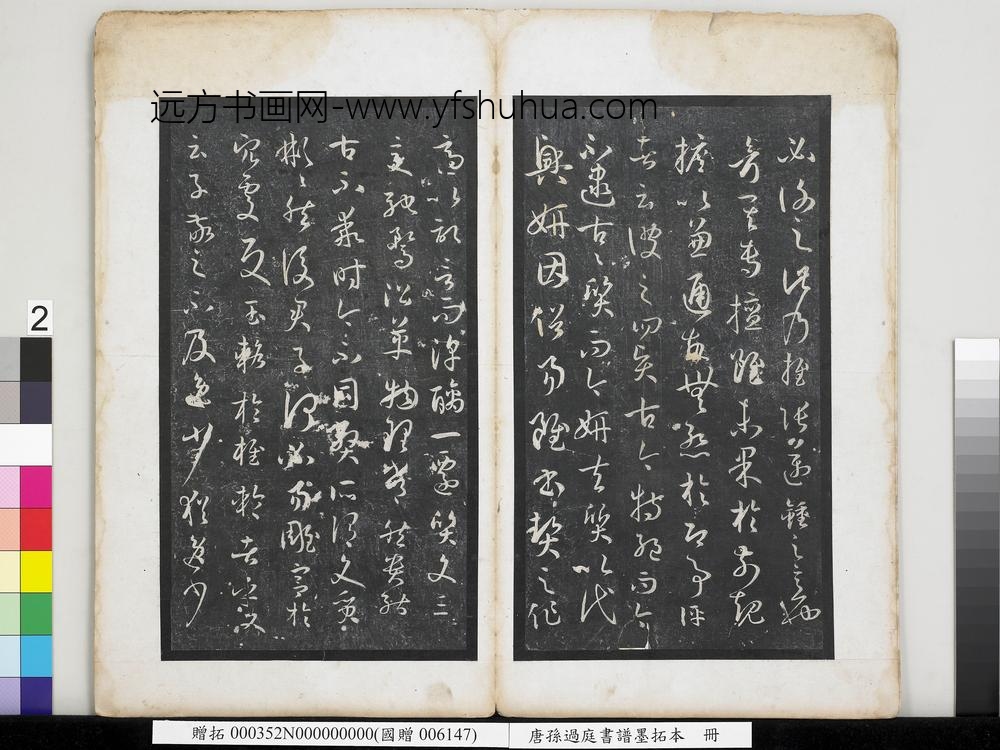 远方书画网-www.yfshuhua.com
必謝之此乃推張邁鍾之意也
考其專擅雖未果於前規
摭以兼通故無慚於即事評
者云彼之四賢古今特絕而今
不逮古古質而今妍夫質以代
興妍因俗易雖書契之作
適以記言而淳醨一遷質文三
變馳騖沿革物理常然貴能
古不乖時今不同弊所謂文質
彬彬然後君子何必易雕宮於
穴處反玉輅於椎輪者乎又
云子敬之不及逸少猶逸少
2
贈拓 000352N000000000(國贈 006147)
唐孫過庭書譜墨拓本 冊